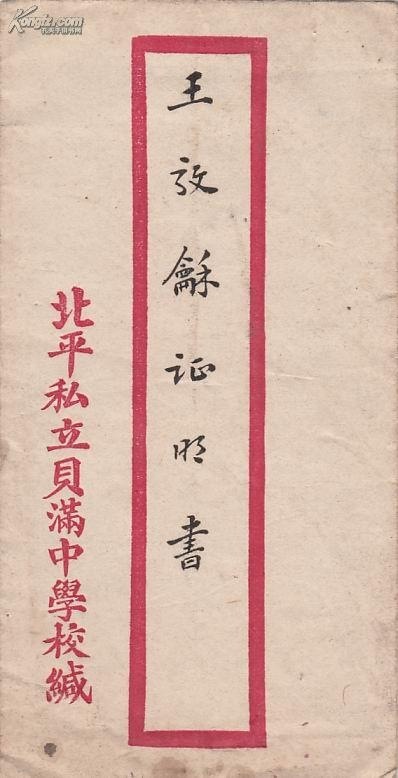 Kongfz.com
孔夫子旧书网
王政龢证明书
北平私立貝滿中學校緘